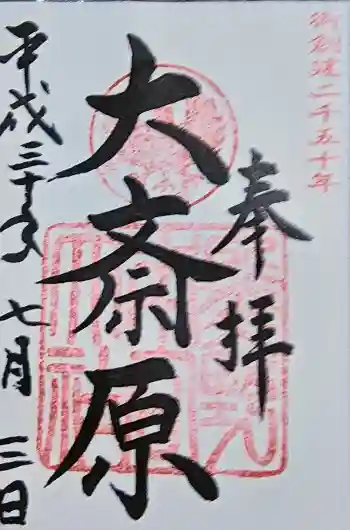 御創建二千五十年
奉拝
大斎原
平成三十年
七月三日